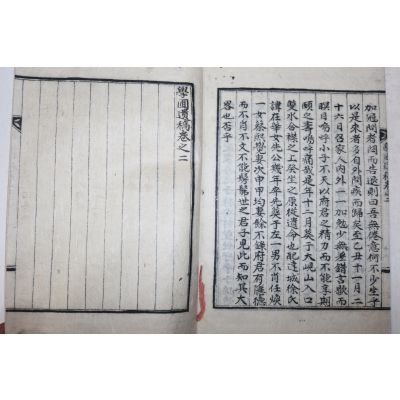 加冠問者悶而告退則曰吾無倦意何不少坐乎
以是來者多自外問疾而歸矣至乙丑十一月二
十六日召家人內外一一加勉少無差錯言歇而
瞑目嗚呼小子不天以府君之精力而不能享期
頤之壽嗚呼痛哉是年十二月葬于大峴山入口
雙水合襟之上癸坐之原從遺命也配達城徐氏
諱在華女先公幾年卒先葬于左一男不肖任煥
一女蔡熙覺妻次申申均妻餘不錄府君有隱德
而不肖不文不能髣髴世之君子見此而知其大
畧也否乎
學圃遺稿卷之二